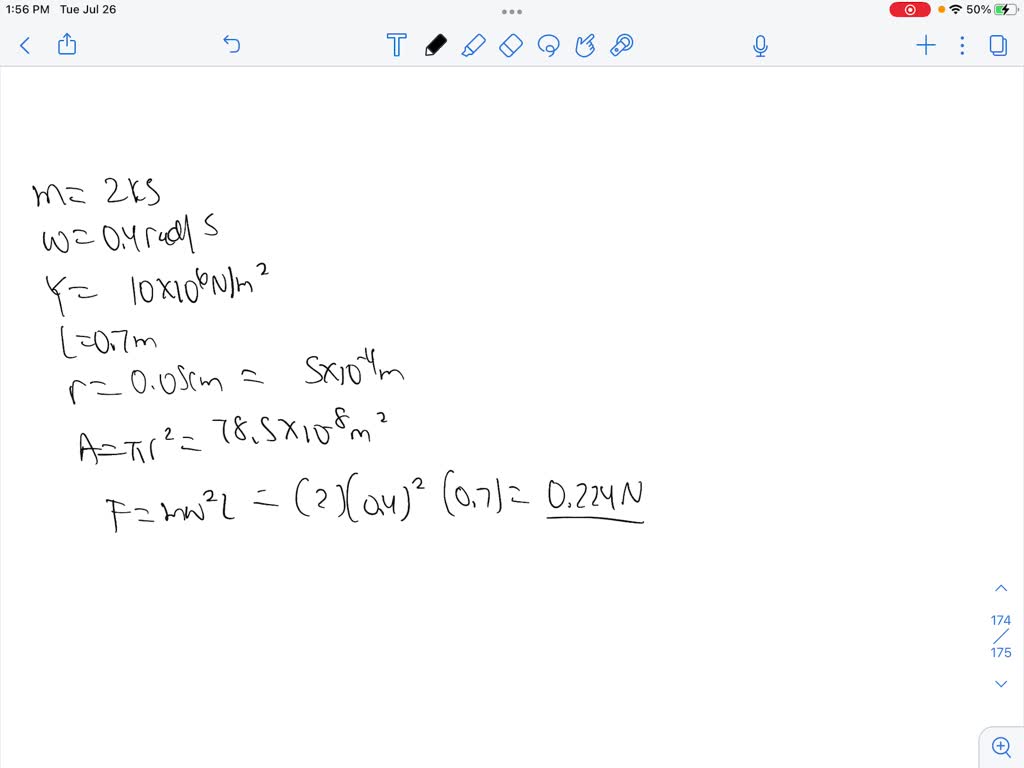 1:56 PM Tue Jul 26
50%
T
m= 2kg
w=0.4rad/s
Y= 10×10⁶N/m²
l=0.7m
r=0.05cm = 5×10⁻⁴m
A=πr²= 78.5×10⁻⁸m²
F=mw²l = (2)(0.4)² (0.7)= 0.224N
174
/
175